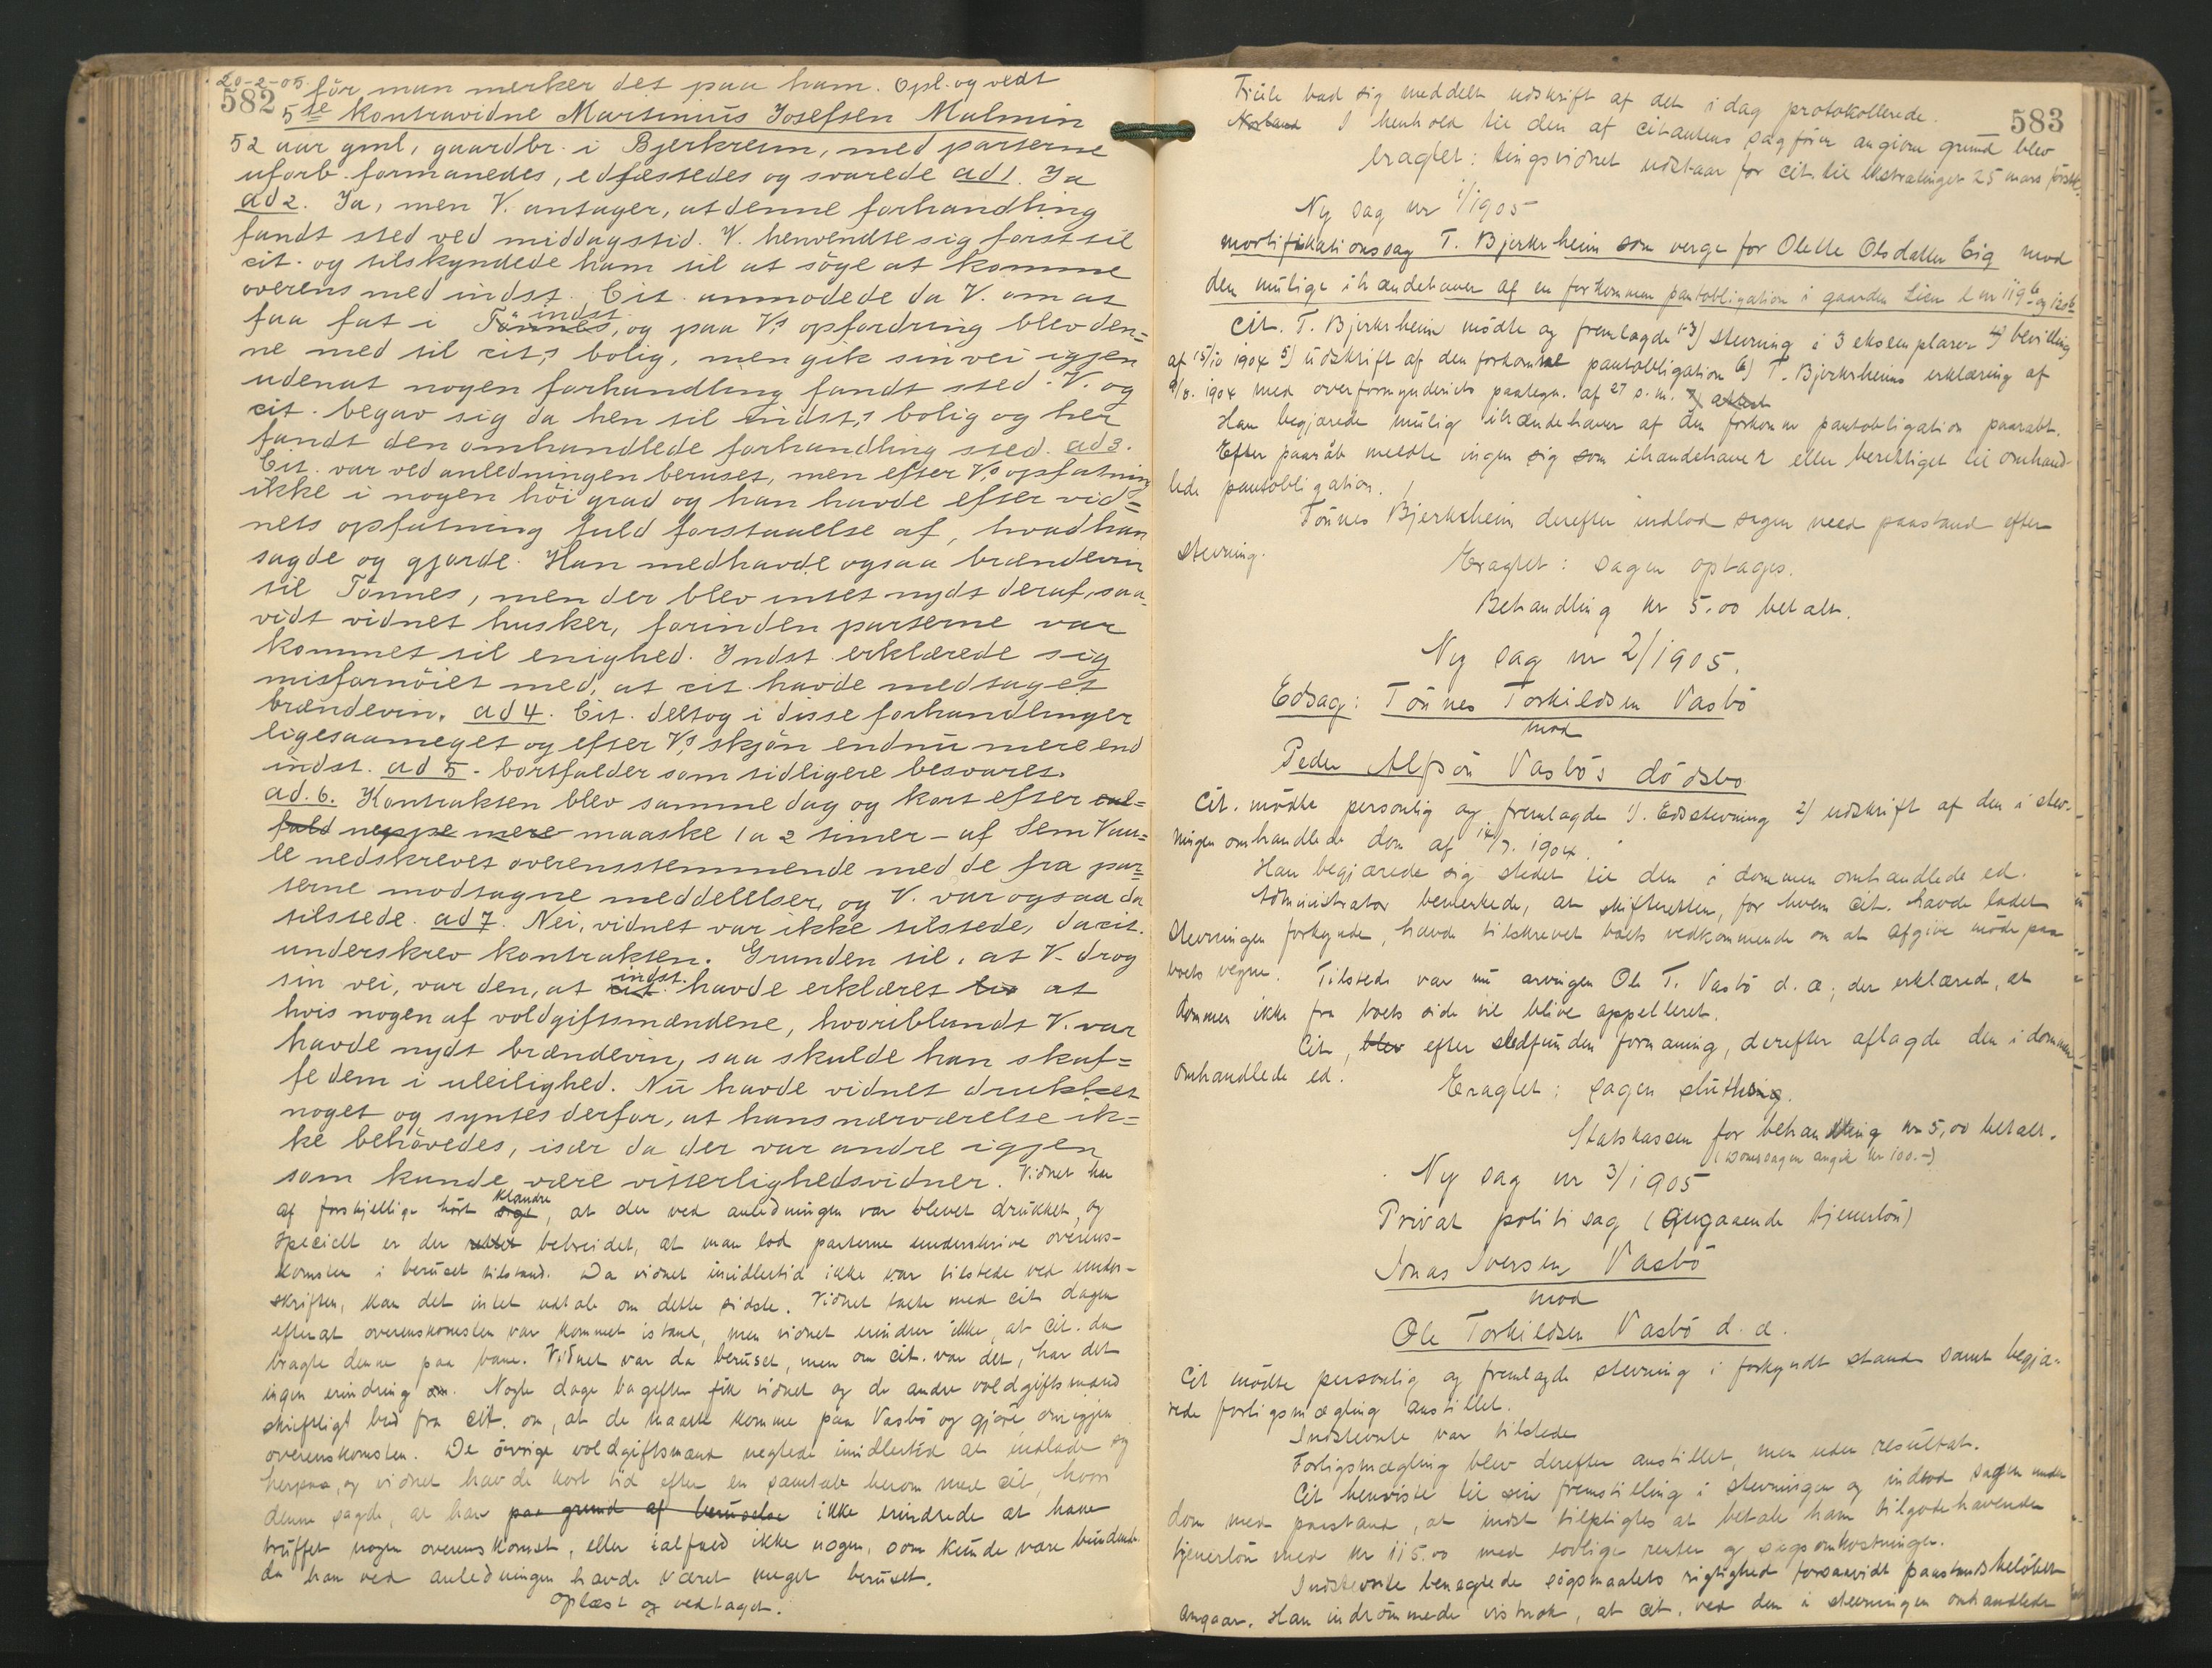 20-2-05
582
för man merker det paa ham. Opl. og vedt
5te Kontravidne Martinius Josefsen Malmin
52 aar gml, gaardbr. i Bjerkreim, med parterne
uforb. formanedes, edfæstedes og svarede ad 1. Ja
ad 2. Ja, men V. antager, at denne forhandling
fandt sted ved middagstid. V. henvendte sig først til
cit. og tilskyndede ham til at söge at komme
overens med indst. Cit. anmodede da V. om at
faa fat i Tönnes indst., og paa V.s opfordring blev den=
ne med til cit.s bolig, men gik sin vei igjen
uden at nogen forhandling fandt sted. V. og
cit. begav sig da hen til indst.s bolig og her
fandt den omhandlede forhandling sted. ad 3.
Cit. var ved anledningen beruset, men efter V.s opfatning
ikke i nogen höi grad og han havde efter vid=
nets opfatning fuld forstaaelse af, hvad han
sagde og gjorde. Han medhavde ogsaa brændevin
til Tönnes, men der blev intet nydt deraf, saa=
vidt vidnet husker, forinden parterne var
kommet til enighed. Indst. erklærede sig
misfornöiet med, at cit. havde medtaget
brændevin. ad 4. Cit. deltog i disse forhandlinger
ligesaameget og efter V.s skjön endnu mere end
indst. ad 5. bortfalder som tidligere besvaret.
ad. 6. Kontrakten blev samme dag og kort efter ial=
fald neppe mere maaske 1 a 2 timer - af Sem Vau=
le nedskrevet overensstemmende med de fra par=
terne modtagne meddelelser, og V. var ogsaa da
tilstede. ad 7. Nei, vidnet var ikke tilstede, da cit.
underskrev kontrakten. Grunden til, at V. drog
sin vei, var den, at cit. indst. havde erklæret at
hvis nogen af voldgiftsmændene, hvoriblandt V. var
havde nydt brændevin, saa skulde han skaf=
fe dem i uleilighed. Nu havde vidnet drukket
noget og syntes derfor, at hans nærværelse ik=
ke behövedes, især da der var andre igjen
som kunde være vitterlighedsvidner. Vidnet har
af forskjellige hört sagt klandre, at der ved anledningen var blevet drukket, og
specielt er der bebreidet, at man lod parterne underskrive overens-
komsten i beruset tilstand. Da vidnet imidlertid ikke var tilstede ved under-
skriften, kan det intet udtale om dette sidste. Vidnet talte med cit. dagen
efterat overenskomsten var kommet istand, men vidnet erindrer ikke, at cit. da
bragte denne paa bane. Vidnet var da beruset, men om cit. var det, har det
ingen erindring om. Nogle dage bagefter fik vidnet og de andre voldgiftsmænd
skriftligt bud fra cit. om, at de maatte komme paa Vasbö og gjöre om igjen
overenskomsten. De övrige voldgiftsmænd neglede imidlertid at indlade sig
herpaa, og vidnet havde kort tid efter en samtale herom med cit., hvori
denne sagde, at han paa grund af beruselse ikke erindrede at have
truffet nogen overenskomst, eller ialfald ikke nogen, som kunde være bindende
da han ved anledningen havde været meget beruset.
Oplæst og vedtaget.
583
bad sig meddelt udskrift af det i dag protokollerede.
I henhold til den af citantens sagförer angivne grund blev
eragtet: tingsvidnet udstaar for cit. til Extratinget 25 mars förstk.
Ny sag nr 1/1905
mortifikationssag T. Bjerkrheim som verge for Olette Olsdatter Eig mod
den mulige ihændehaver af en forkommen pantobligation i gaarden Lien l nr 119b og 120b
Cit. T. Bjerkrheim mödte og fremlagde 1-3) stevning i 3 eksemplarer 4) bevilling
af 15/10 1904 5) udskrift af den forkomne pantobligation 6) T. Bjerkrheims erklæring af
1904 med overformynderiets paategn. af 27 s. m. 7) attest
Han begjærede mulig ihændehaver af den forkomne pantobligation paaraabt.
Efter paaraab meldte ingen sig som ihændehaver eller berettiget til omhand-
lede pantobligation.
Tönnes Bjerkrheim derefter indlod sagen med paastand efter
stevning.
Eragtet: sagen optages.
Behandling kr 5.00 betalt.
Ny sag nr 2/1905.
Edsag: Tönnes Torkildsen Vasbö
mod
Peder Alfsön Vasbö's dödsbo
Cit. mödte personlig og fremlagde 1). Edsstevning 2) udskrift af den i stev-
ningen omhandlede dom af 14/7. 1904.
Han begjærede sig stedet til den i dommen omhandlede ed.
Administrator bemerkede, at skifteretten, for hvem cit. havde ladet
stevningen forkynde, havde tilskrevet boets vedkommende om at afgive möde paa
boets vegne. Tilstede var nu arvingen Ole T. Vasbö d. æ., der erklærede, at
dommen ikke fra boets side vil blive appelleret.
Cit., blev efter stedfunden formaning, derefter aflagde den i dommen
omhandlede ed.
Eragtet: sagen sluttning.
Statskassen for behandling kr 5,00 betalt.
(Domssagen angik kr 100.-)
Ny sag nr 3/1905
Privat politisag (Angaaende tjenerlön)
Jonas Iversen Vasbö
mod
Ole Torkildsen Vasbö d. æ.
Cit mödte personlig og fremlagde stevning i forkyndt stand samt begjæ-
rede forligsmægling anstillet.
Indstevnte var tilstede
Forligsmægling blev derefter anstillet, men uden resultat.
Cit henviste til sin fremstilling i stevningen og indlod sagen under
dom med paastand, at indst tilpligtes at betale ham tilgodehavende
tjenerlön med kr 115.00 med lovlige renter og sagsomkostninger.
Indstevnte benegtede sögsmaalets rigtighed forsaavidt paastandsbelöbet
angaar. Han indrömmede vistnok, at cit. ved den i stevningen omhandlede